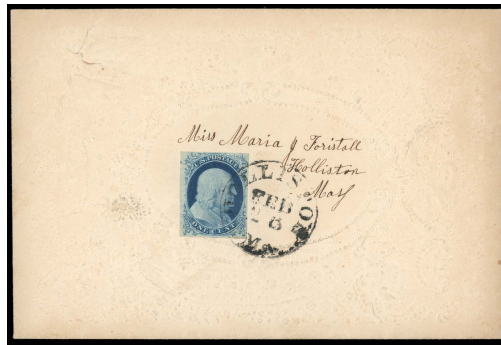 Miss Maria J Foristall
Holliston
Mass
U.S. POSTAGE
ONE CENT
HOLLISTON
FEB
MS.